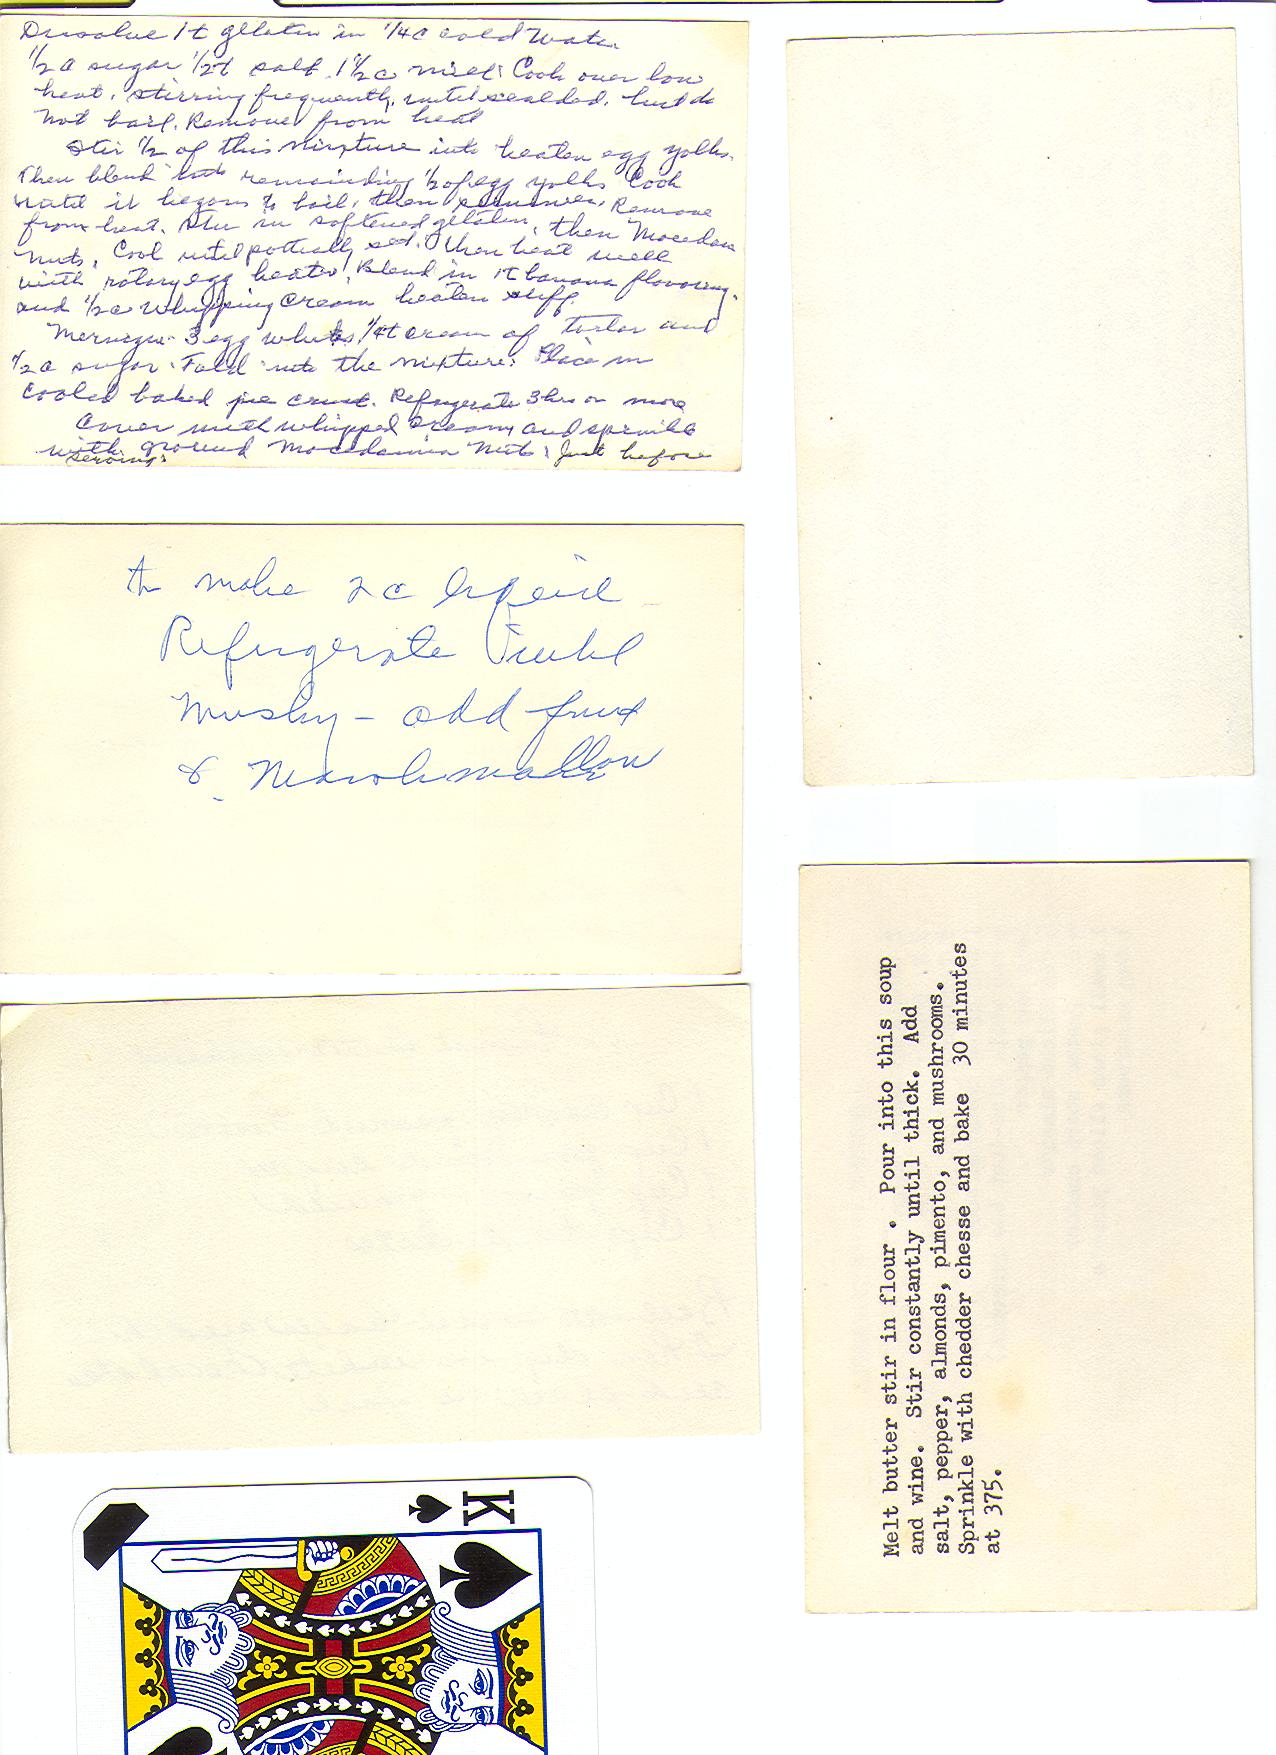 Dissolve 1t gelatin in 1/4c cold water
1/2 c sugar 1/2t salt. 1 1/2 c milk. Cook over low
heat, stirring frequently, until scalded, but do
not boil. Remove from heat
Stir 1/2 of this mixture into beaten egg yolks.
Then blend into remainding 1/2 of egg yolks Cook
until it begons to boil, then simmer, Remove
from heat. Stir in softened gelatin, then Macedam
nuts, Cool until partially set. Then beat well
with rotary egg beater, Blend in 1t banana flavoring.
and 1/2c whipping cream beaten stiff.
Meringue - 3 egg whites, 1/4t cream of tartar and
1/2 c sugar. Fold into the mixture. Place in
cooled baked pie crust. Refrigerate 3hrs or more
Cover with whipped cream and sprinkle
with ground Macedamia nuts, Just before
serving.
to make 2 c liquid
Refrigerate until
Mushy - add fruit
& Marshmallow
Melt butter stir in flour . Pour into this soup
and wine. Stir constantly until thick. Add
salt, pepper, almonds, pimento, and mushrooms.
Sprinkle with chedder chesse and bake 30 minutes
at 375.
K